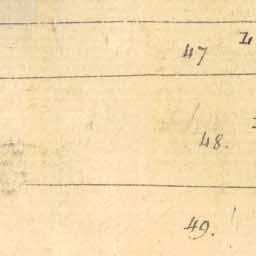 47
48.
49.